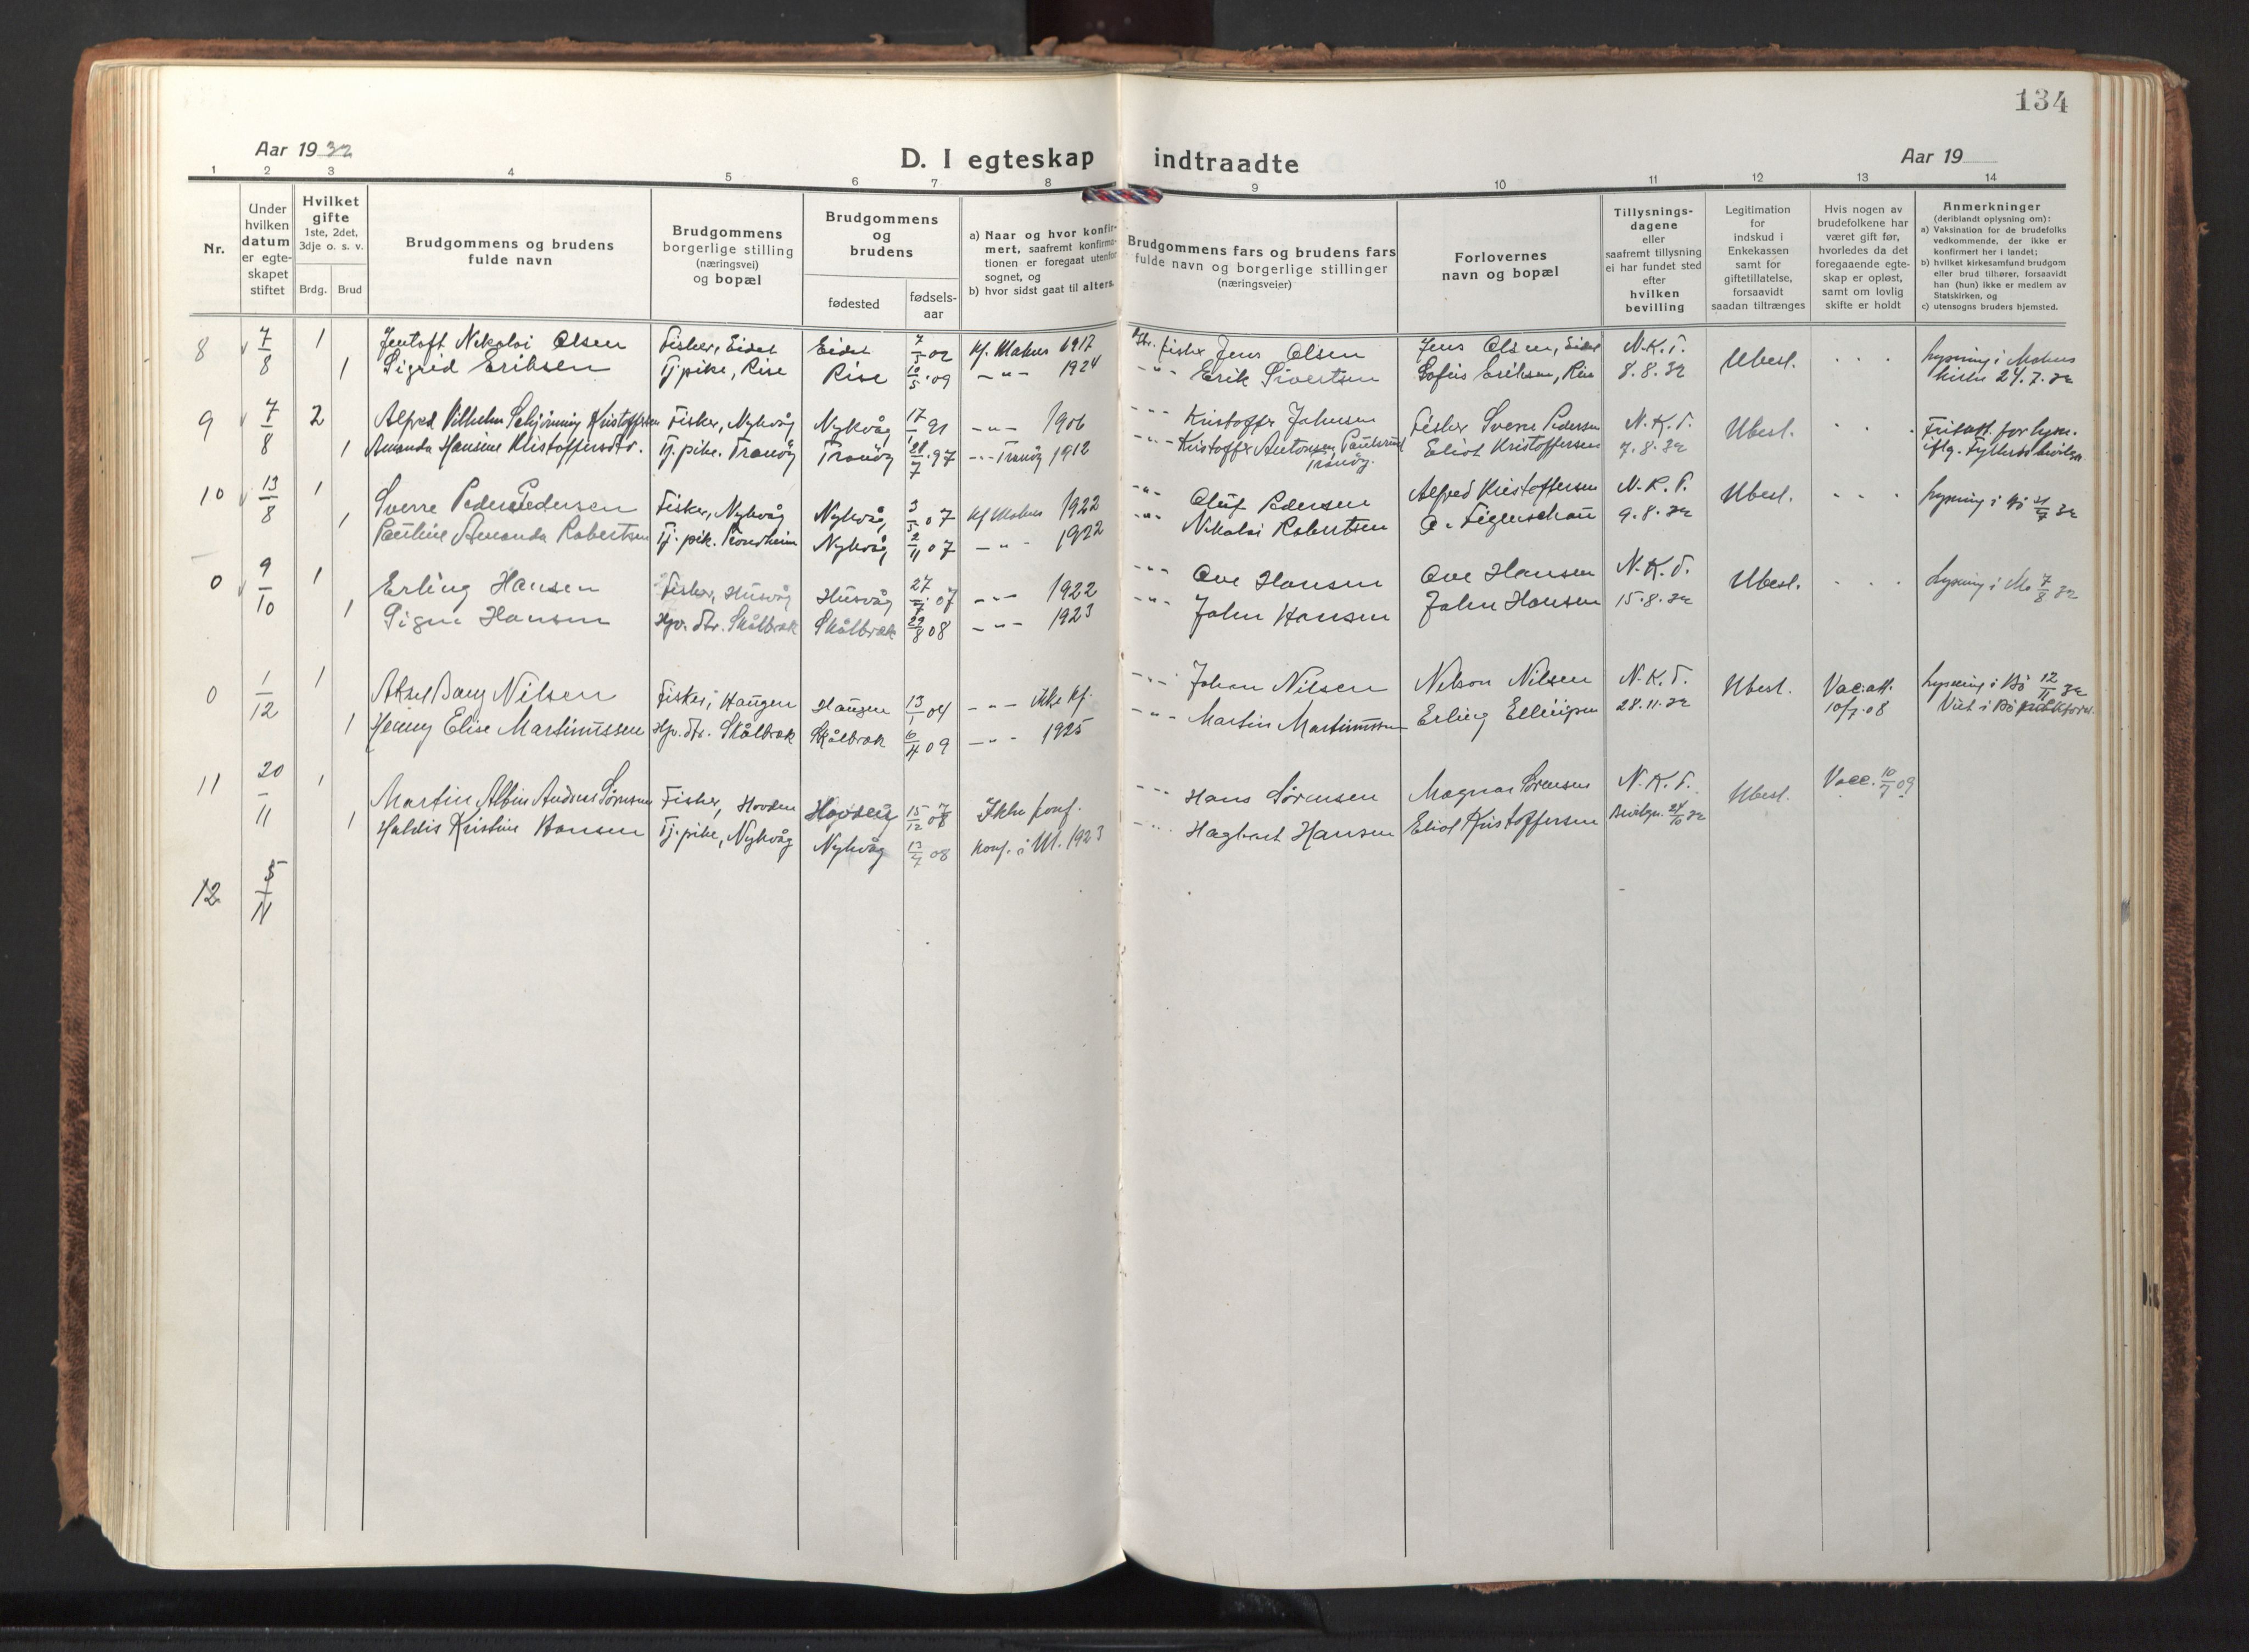 134
Aar 19 32
D. I egteskap indtraadte
Aar 19
1 2 3 4 5 6 7 8 9 10 11 12 13 14
Nr.
Under hvilken datum er egte-skapet stiftet
Hvilket gifte 1ste, 2det, 3dje o. s. v.
Brdg. Brud
Brudgommens og brudens fulde navn
Brudgommens borgerlige stilling (næringsvei) og bopæl
Brudgommens og brudens
fødested
fødsels-aar
a) Naar og hvor konfir-mert, saafremt konfirma-tionen er foregaat utenfor sognet, og
b) hvor sidst gaat til alters.
Brudgommens fars og brudens fars fulde navn og borgerlige stillinger (næringsveier)
Forlovernes navn og bopæl
Tillysnings-dagene eller saafremt tillysning ei har fundet sted efter hvilken bevilling
Legitimation for indskud i Enkekassen samt for giftetillatelse, forsaavidt saadan tiltrænges
Hvis nogen av brudefolkene har været gift før, hvorledes da det foregaaende egte-skap er opløst, samt om lovlig skifte er holdt
Anmerkninger (deriblandt oplysning om):
a) Vaksination for de brudefolks vedkommende, der ikke er konfirmert her i landet;
b) hvilket kirkesamfund brudgom eller brud tilhører, forsaavidt han (hun) ikke er medlem av Statskirken, og
c) utensogns bruders hjemsted.
8 7/8 1 Jentoft Nikolai Olsen Fisker, Eidet Eidet 7/5 02 Kf. Malnes 1917 Fisker Jens Olsen Jens Olsen, Eidet N.K.T. Ubest. Lysning i Malnes
1 Sigrid Eriksen Tj.pike, Rise Rise 10/5 09 - " - 1924 - " - Erik Sivertsen Sofus Eriksen, Rise 8.8.32 kirke 24.7.32
9 7/8 2 Alfred Vilhelm Schjönning Kristoffersen Fisker, Nykvåg Nykvåg 17/1 91 - " - 1906 - " - Kristoffer Johnsen Fisker Sverre Pedersen N.K.T. Ubest. Fritatt for lysn.
1 Amanda Hansine Kristoffersdtr. Tj.pike. Tranöy Tranöy 7 97 - " - Tranöy 1912 - " - Kristoffer Antonsen Tranöy. Eliot Kristoffersen 7.8.32 iflg. Fylkets bevilgn.
10 13/8 1 Sverre Peder Pedersen Fisker, Nykvåg Nykvåg 3/5 07 Kf Malnes 1922 - " - Oluf Pedersen Alfred Kristoffersen N.K.T. Ubest. Lysning i Bö 7 32
1 Pauline Amanda Robertsen Tj.pik. Trondheim Nykvåg 2/11 07 - " - 1922 - " - Nikolai Robertsen O. Figenschau 9.8.32
0 9/10 1 Erling Hansen Fisker, Husvåg Husvåg 27/7 07 - " - 1922 - " - Ove Hansen Ove Hansen N.K.T. Ubest. Lysning i Ma 7/8 32
1 Signe Hansen Hjv. dtr. Skålbrak Skålbrak 29/8 08 - " - 1923 - " - John Hansen John Hansen 15.8.32
0 1/12 1 Aksel Bang Nilsen Fisker, Haugen Haugen 13/1 04 - " - ikke kf. - " - Johan Nilsen Nelson Nilsen N.K.T. Ubest. Vac.att. Lysning i Bö 12/11 32
1 Jenny Elise Martinussen Hjv. dtr. Skålbrak Skålbrak 6/4 09 - " - 1925 - " - Martin Martinussen Erling Ellingsen 28.11.32 10/7.08 Viet i Bö
11 20/11 1 Martin Albin Andreas Sörensen Fisker, Hovden Hovden 15/12 07 Ikke konf. - " - Hans Sörensen Magnar Sörensen N.K.T. Ubest. Vacc. 10/7 09
1 Haldis Kristine Hansen Tj.pike, Nykvåg Nykvåg 13/4 08 Konf. i M. 1923 - " - Hagbart Hansen Eliot Kristoffersen Bevilgn. 24/10 32
12 5/11